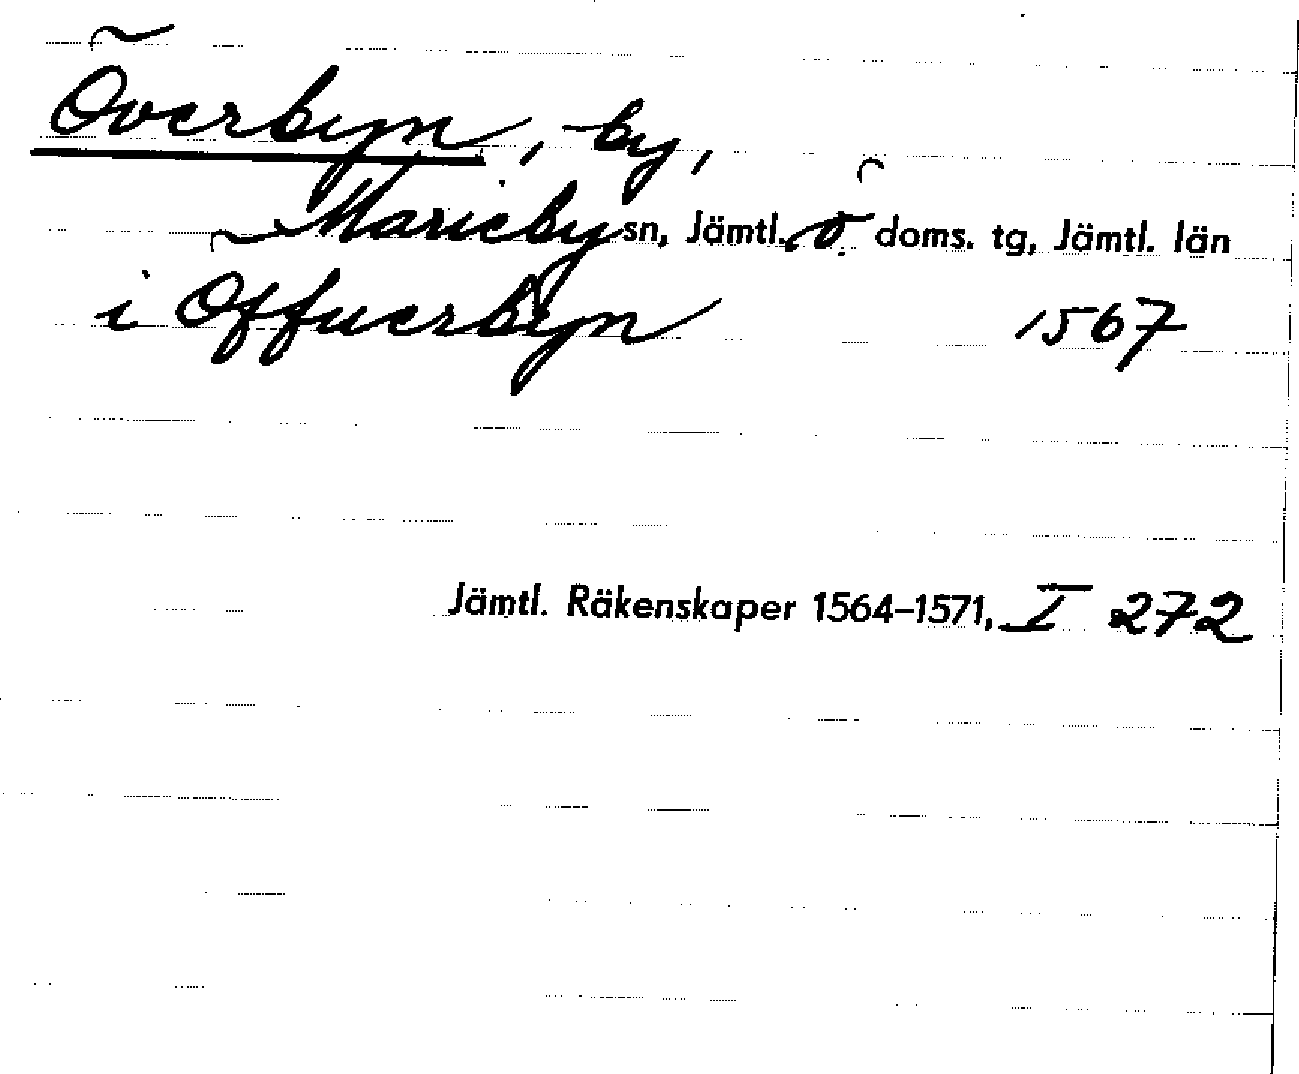 Överbyn, by,
Marieby sn, Jämtl. ö. doms. tg, Jämtl. län
i Offuerbyn 1567
Jämtl. Räkenskaper 1564–1571, I 272